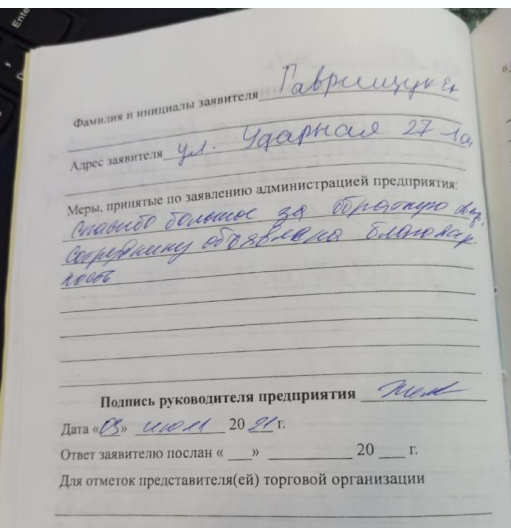 Фамилия и инициалы заявителя Гаврищук
Адрес заявителя ул. Ударная 27
Меры, принятые по заявлению администрацией предприятия:
Спасибо большое за обратную связь.
Сотруднику объявлена благодар-
ность
Подпись руководителя предприятия
Дата «03» июля 20 21 г.
Ответ заявителю послан « ___ » __________ 20 ___ г.
Для отметок представителя(ей) торговой организации
Enter